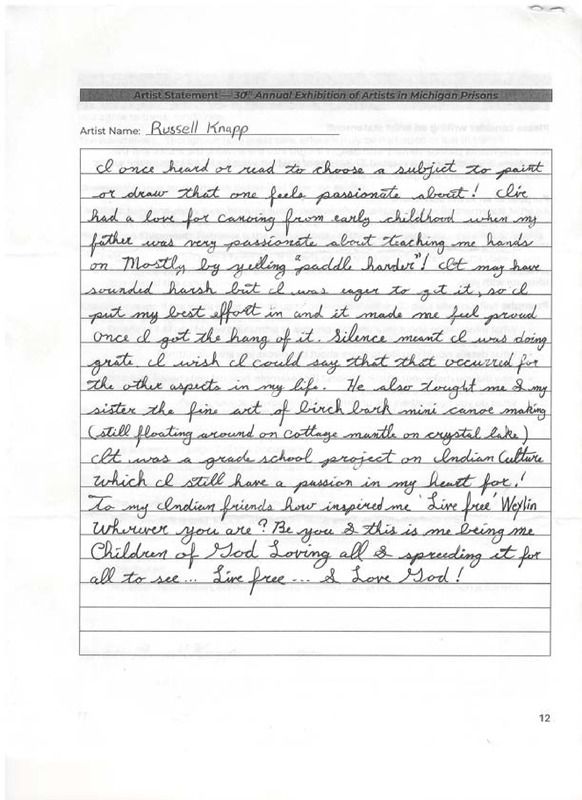 Artist Statement — 30th Annual Exhibition of Artists in Michigan Prisons
Artist Name: Russell Knapp
I once heard or read to choose a subject to paint
or draw that one feels passionate about! I've
had a love for canoing from early childhood when my
father was very passionate about teaching me hands
on Mostly by yelling "paddle harder"! It may have
sounded harsh but I was eager to get it, so I
put my best effort in and it made me feel proud
once I got the hang of it. Silence meant I was doing
grate. I wish I could say that that occurred for
the other aspects in my life. He also tought me & my
sister the fine art of birch bark mini canoe making
(still floating around on cottage mantle on crystal lake)
It was a grade school project on Indian Culture
which I still have a passion in my heart for!
To my Indian friends how inspired me 'Live free' Weylin
Wherever you are? Be you & this is me being me
Children of God Loving all & spreeding it for
all to see... Live free... & Love God!
12